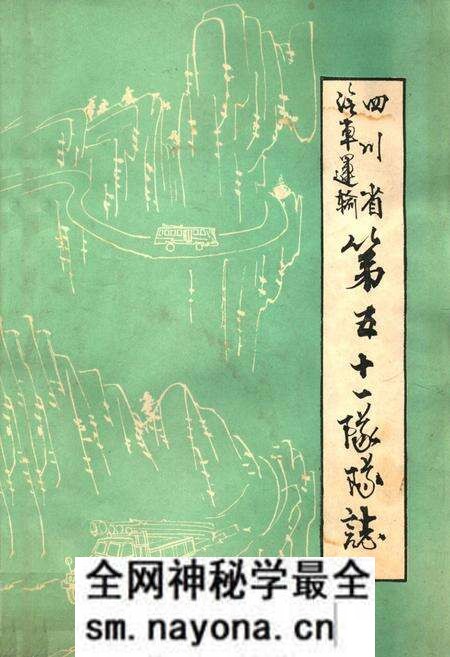 四川省
汽車運輸
第五十一隊隊誌
全网神秘学最全
sm.nayona.cn